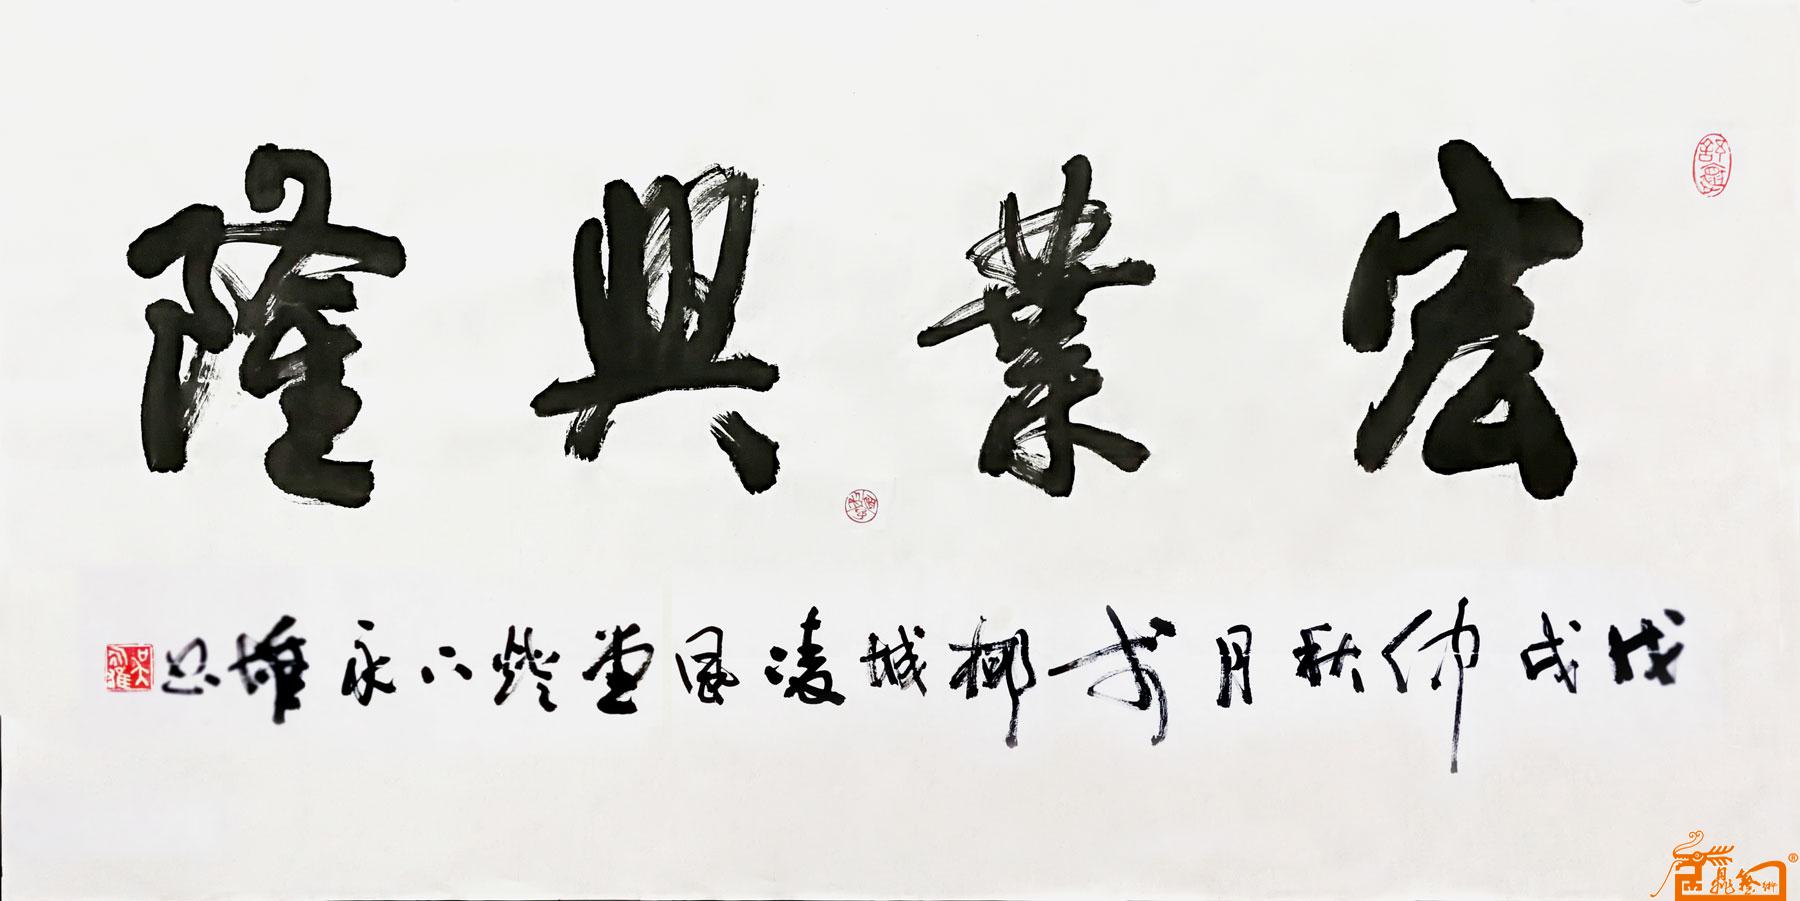 宏業興隆
戊戌仲秋月於柳城凌風堂燈下永雄書